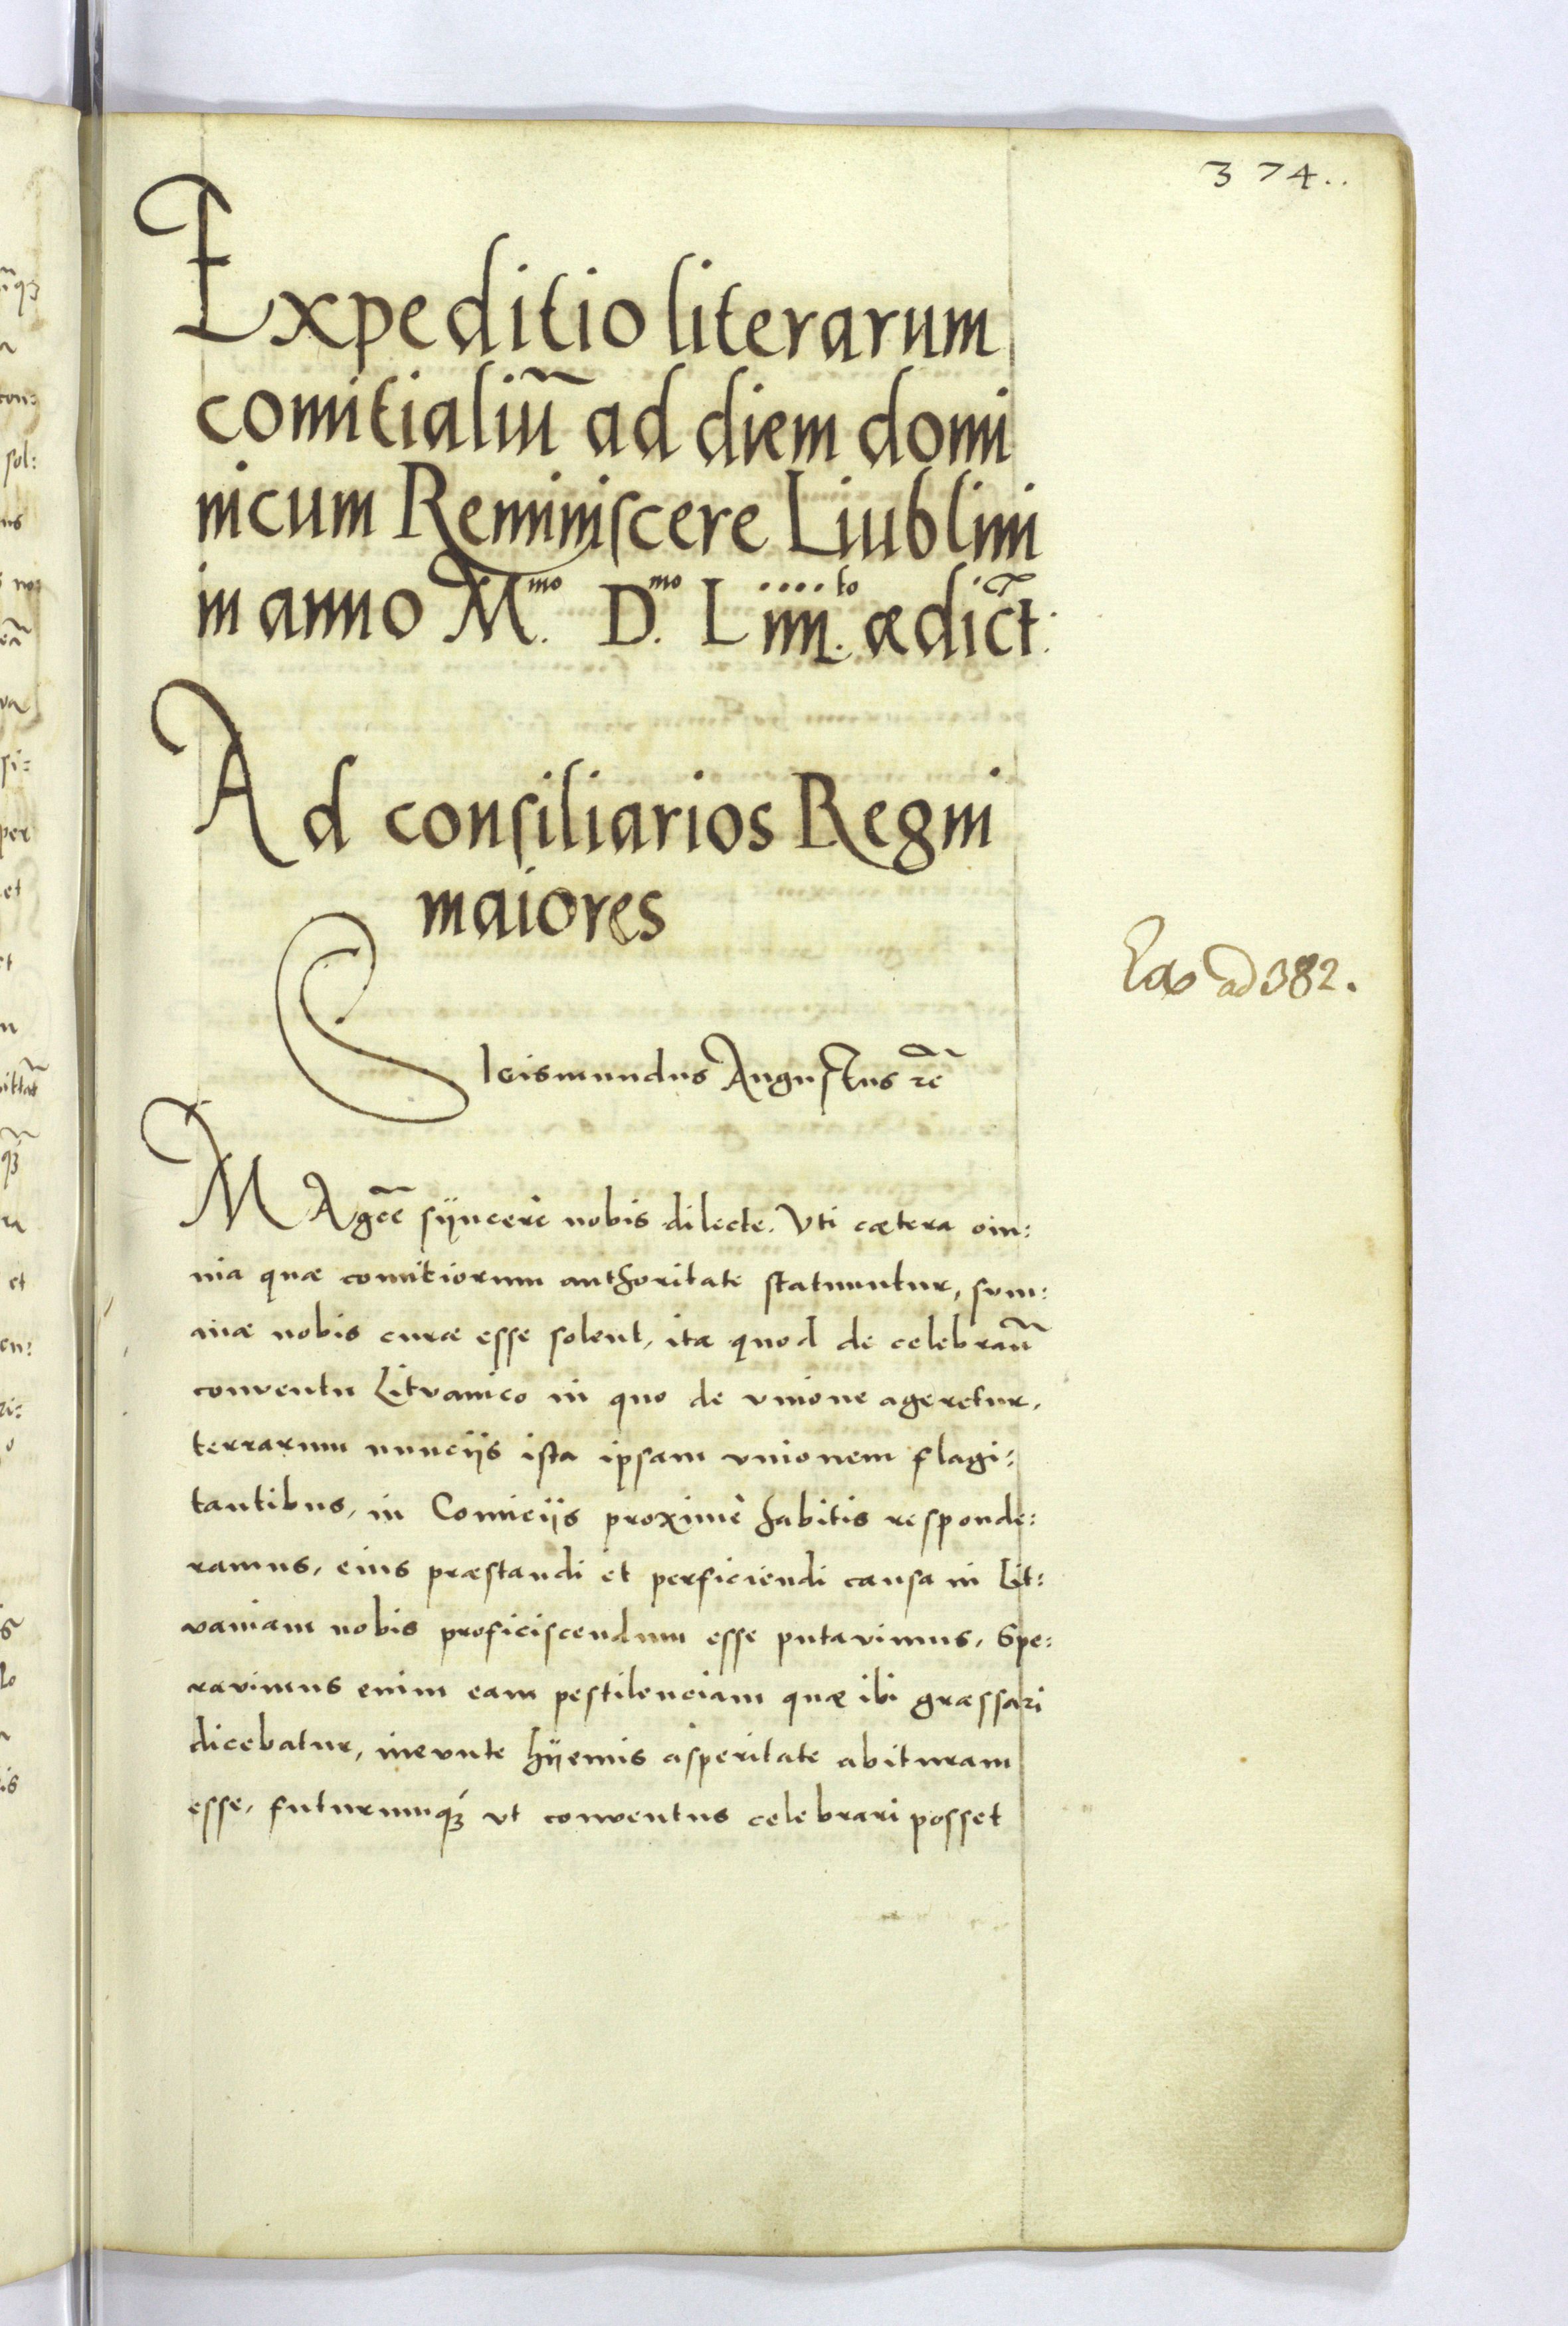 374..
Expeditio literarum
comitialiũ ad diem domi
nicum Reminiscere Liublini
in anno M.mo D.mo L iiii.to ædict:
Ad consiliarios Regni
maiores
ad 382.
Sigismundus Augustus rẽ
MAgcẽ syncerè nobis dilecte. Vti cætera om:
nia quæ comitiorum authoritate statuuntur, sum:
mæ nobis curæ esse solent, ita quod de celebrañ
conventu Litvanico in quo de vnione ageretur,
terrarum nunciis ista ipsam vnionem flagi:
tantibus, in Comiciis proximè habitis responde:
ramus, eius præstandi et perficiendi causa in Lit:
vaniam nobis proficiscendum esse putavimus, Spe:
ravimus enim eam pestilenciam quæ ibi græssari
dicebatur, ineunte hyemis asperitate abituram
esse, futurumqꝫ vt conventus celebrari posset